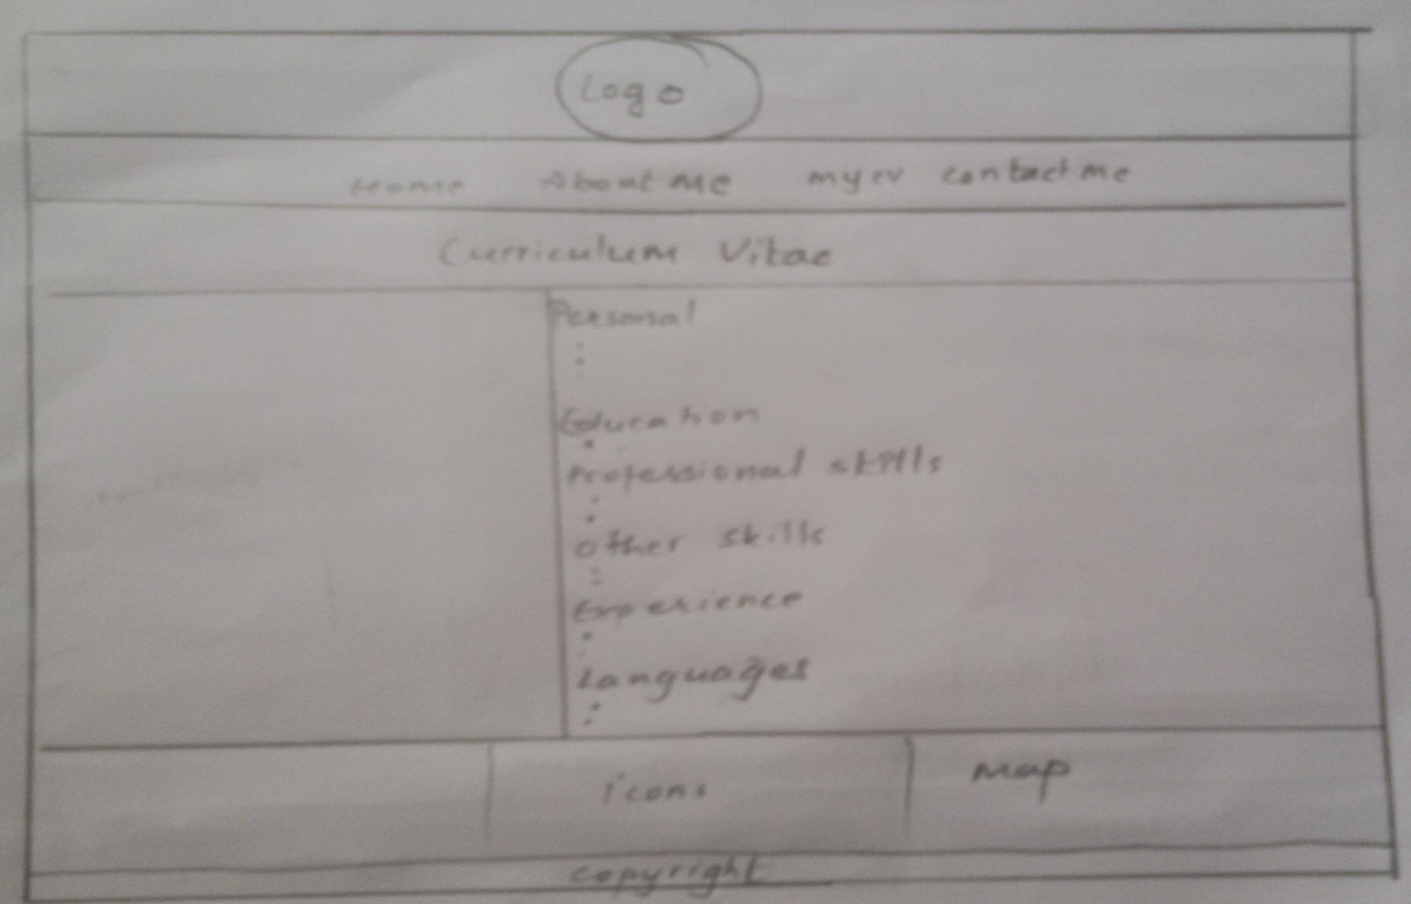 Logo
Home About Me my cv contact me
Curriculum Vitae
Personal
Education
Professional skills
other skills
Experience
Languages
icons
Map
copyright